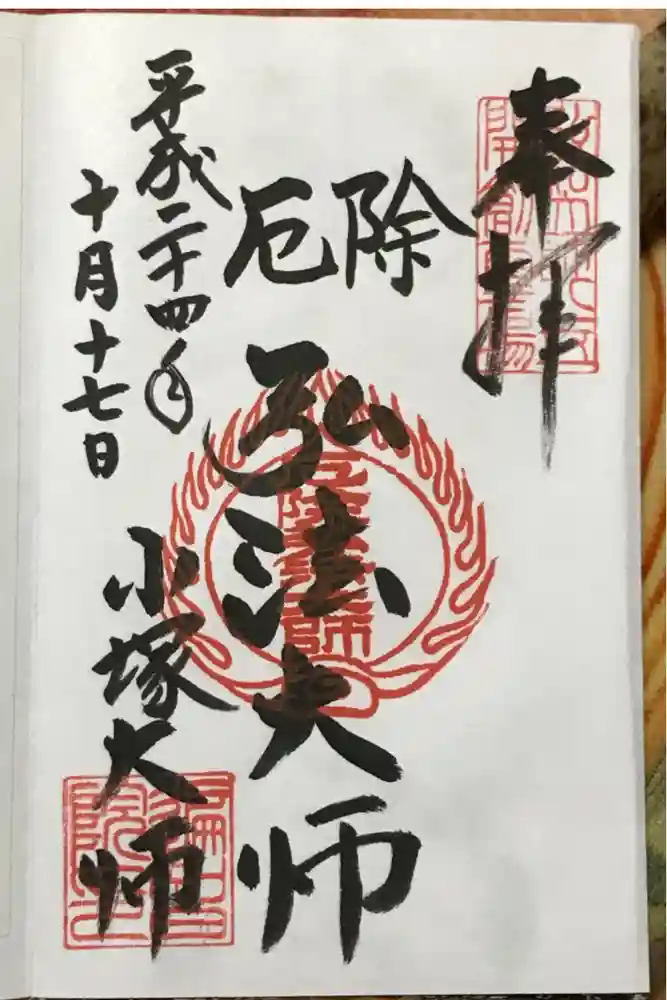 奉拝
除厄
弘法大師
平成二十四年
十月十七日
小塚大師